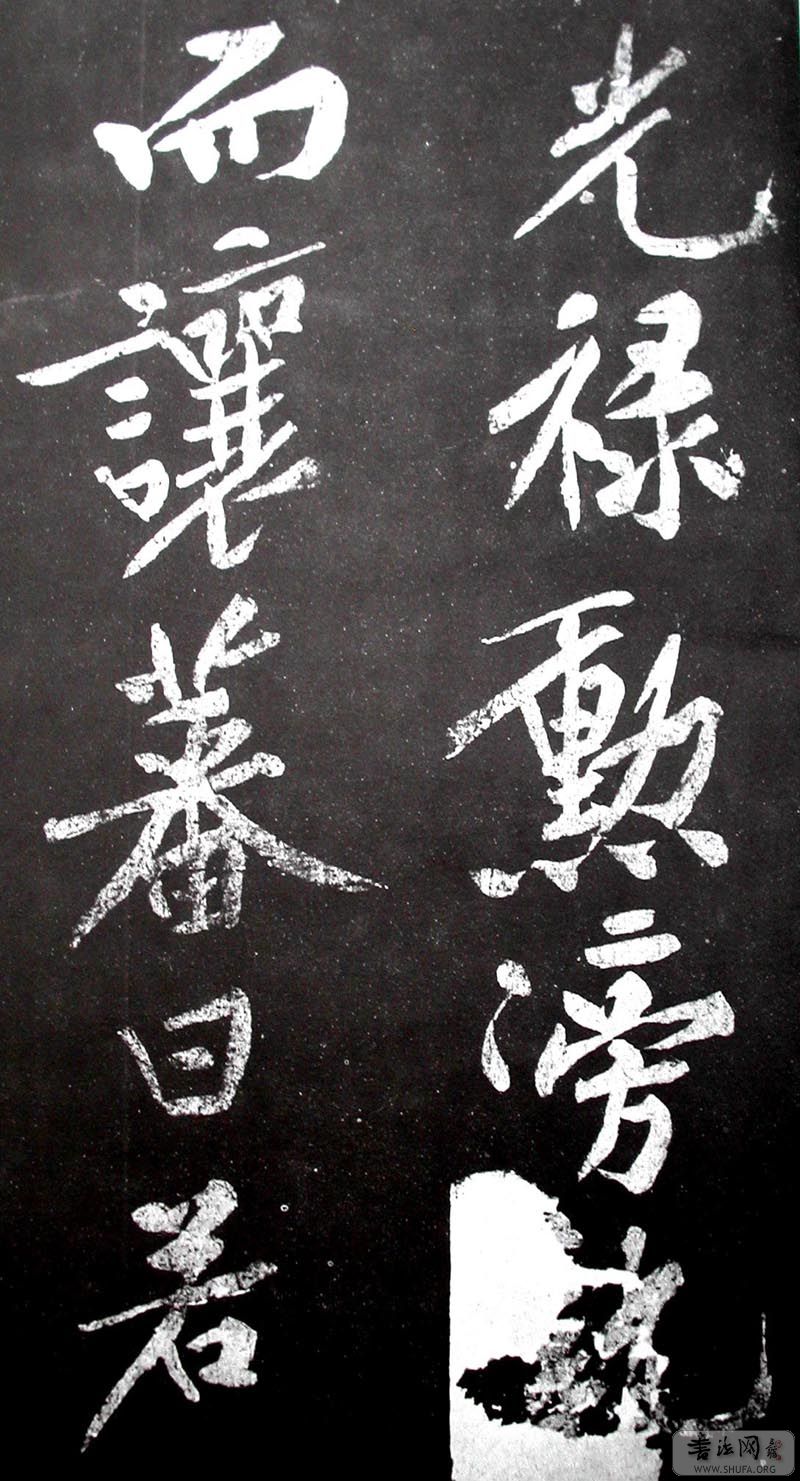 光禄勲滂
而讓蕃曰若
書法网
WWW.SHUFA.ORG